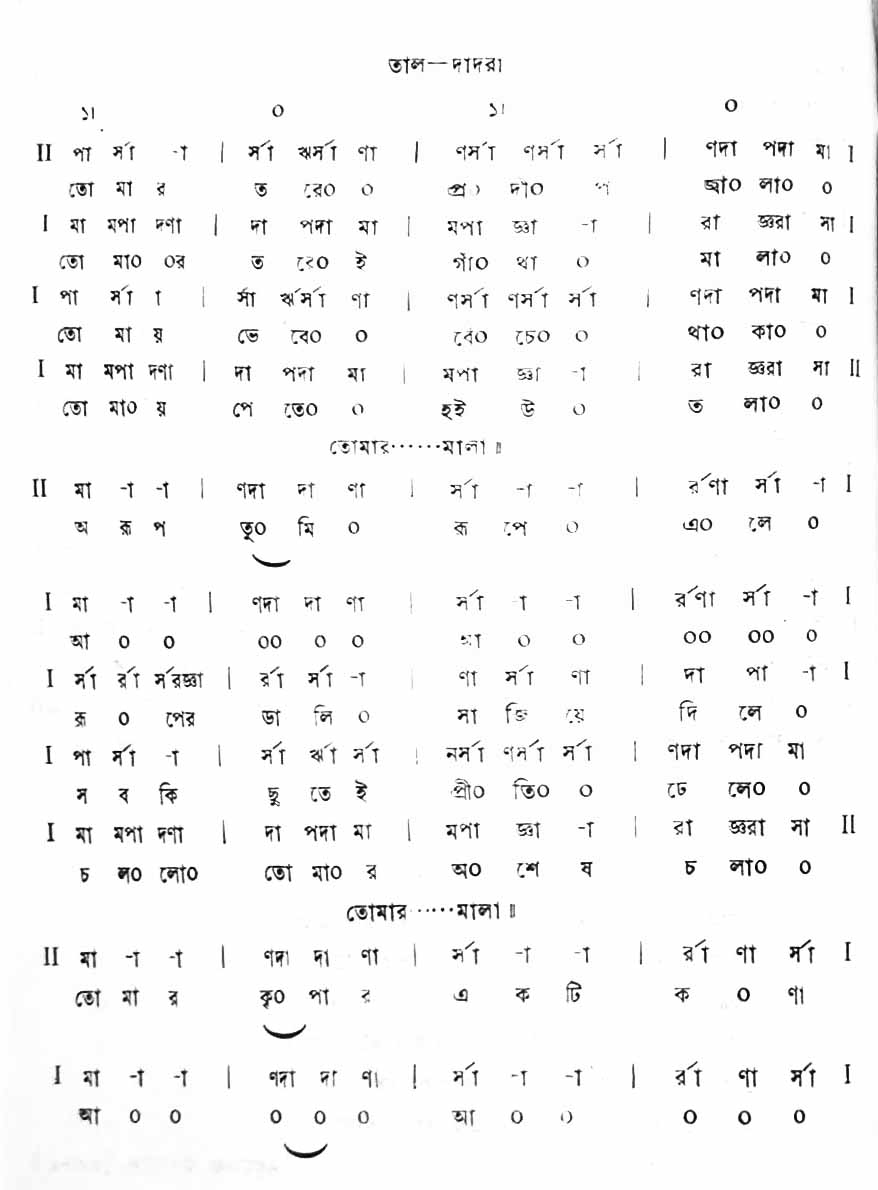 তাল—দাদরা
১৷ ০ ১৷ ০
II পা র্সা -া | র্সা ঋর্সা ণা | ণর্সা ণর্সা র্সা | ণদা পদা মা I
তো মা র ত রে০ ০ প্র ০ দী০ প জ্বা০ লা০ ০
I মা মপা দণা | দা পদা মা | মপা জ্ঞা -া | রা জ্ঞরা সা I
তো মা০ ০র ত রে০ ই গাঁ০ থা ০ মা লা০ ০
I পা র্সা া | র্সা ঋর্সা ণা | ণর্সা ণর্সা র্সা | ণদা পদা মা I
তো মা য় ভে বে০ ০ বেঁ০ চে০ ০ থা০ কা০ ০
I মা মপা দণা | দা পদা মা | মপা জ্ঞা -া | রা জ্ঞরা সা II
তো মা০ য় পে তে০ ০ হই উ ০ ত লা০ ০
তোমার······মালা॥
II মা -া -া | ণদা দা ণা | র্সা -া -া | র্রণা র্সা -া I
অ রূ প তু০ মি ০ রূ পে ০ এ০ লে ০
I মা -া -া | ণদা দা ণা | র্সা -া -া | র্রণা র্সা -া I
আ ০ ০ ০০ ০ ০ আ ০ ০ ০০ ০০ ০
I র্সা র্রা র্সরজ্ঞা | র্রা র্সা -া | ণা র্সা ণা | দা পা -া I
রূ ০ পের ডা লি ০ সা জি য়ে দি লে ০
I পা র্সা -া | র্সা ঋা র্সা | নর্সা ণর্সা র্সা | ণদা পদা মা
স ব কি ছু তে ই প্রী০ তি০ ০ ঢে লে০ ০
I মা মপা দণা | দা পদা মা | মপা জ্ঞা -া | রা জ্ঞরা সা II
চ ল০ লো০ তো মা০ র অ০ শে ষ চ লা০ ০
তোমার ·····মালা॥
II মা -া -া | ণদা দা ণা | র্সা -া -া | র্রা ণা র্সা I
তো মা র কৃ০ পা র এ ক টি ক ০ ণা
I মা -া -া | ণদা দা ণা | র্সা -া -া | র্রা ণা র্সা I
আ ০ ০ ০ ০ ০ আ ০ ০ ০ ০ ০